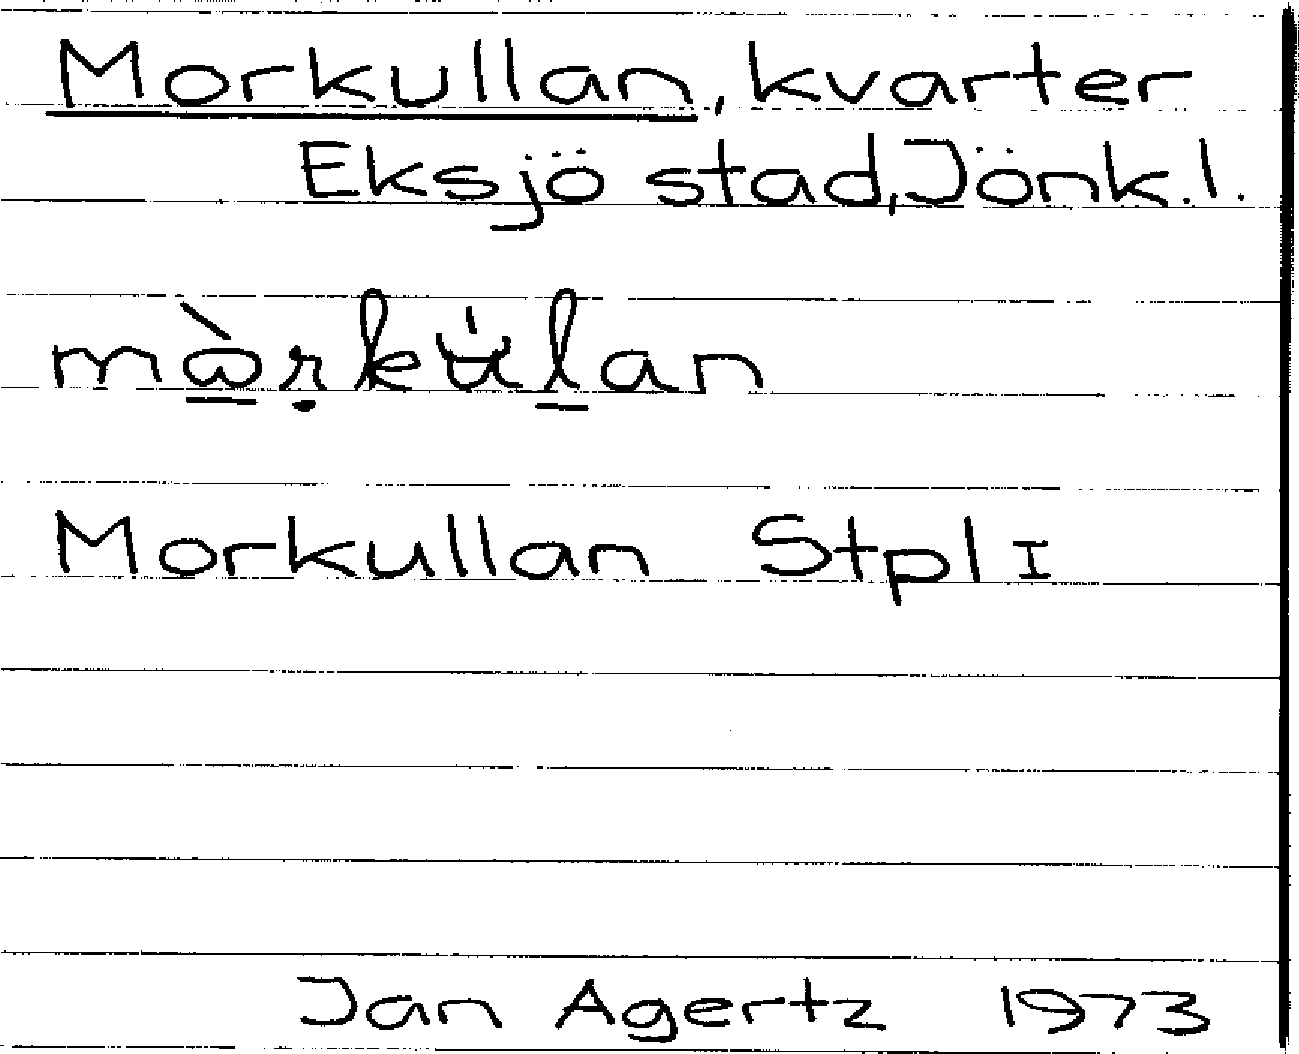 Morkullan, kvarter
Eksjö stad, Jönk. l.
Morkullan Stpl I
Jan Agertz 1973